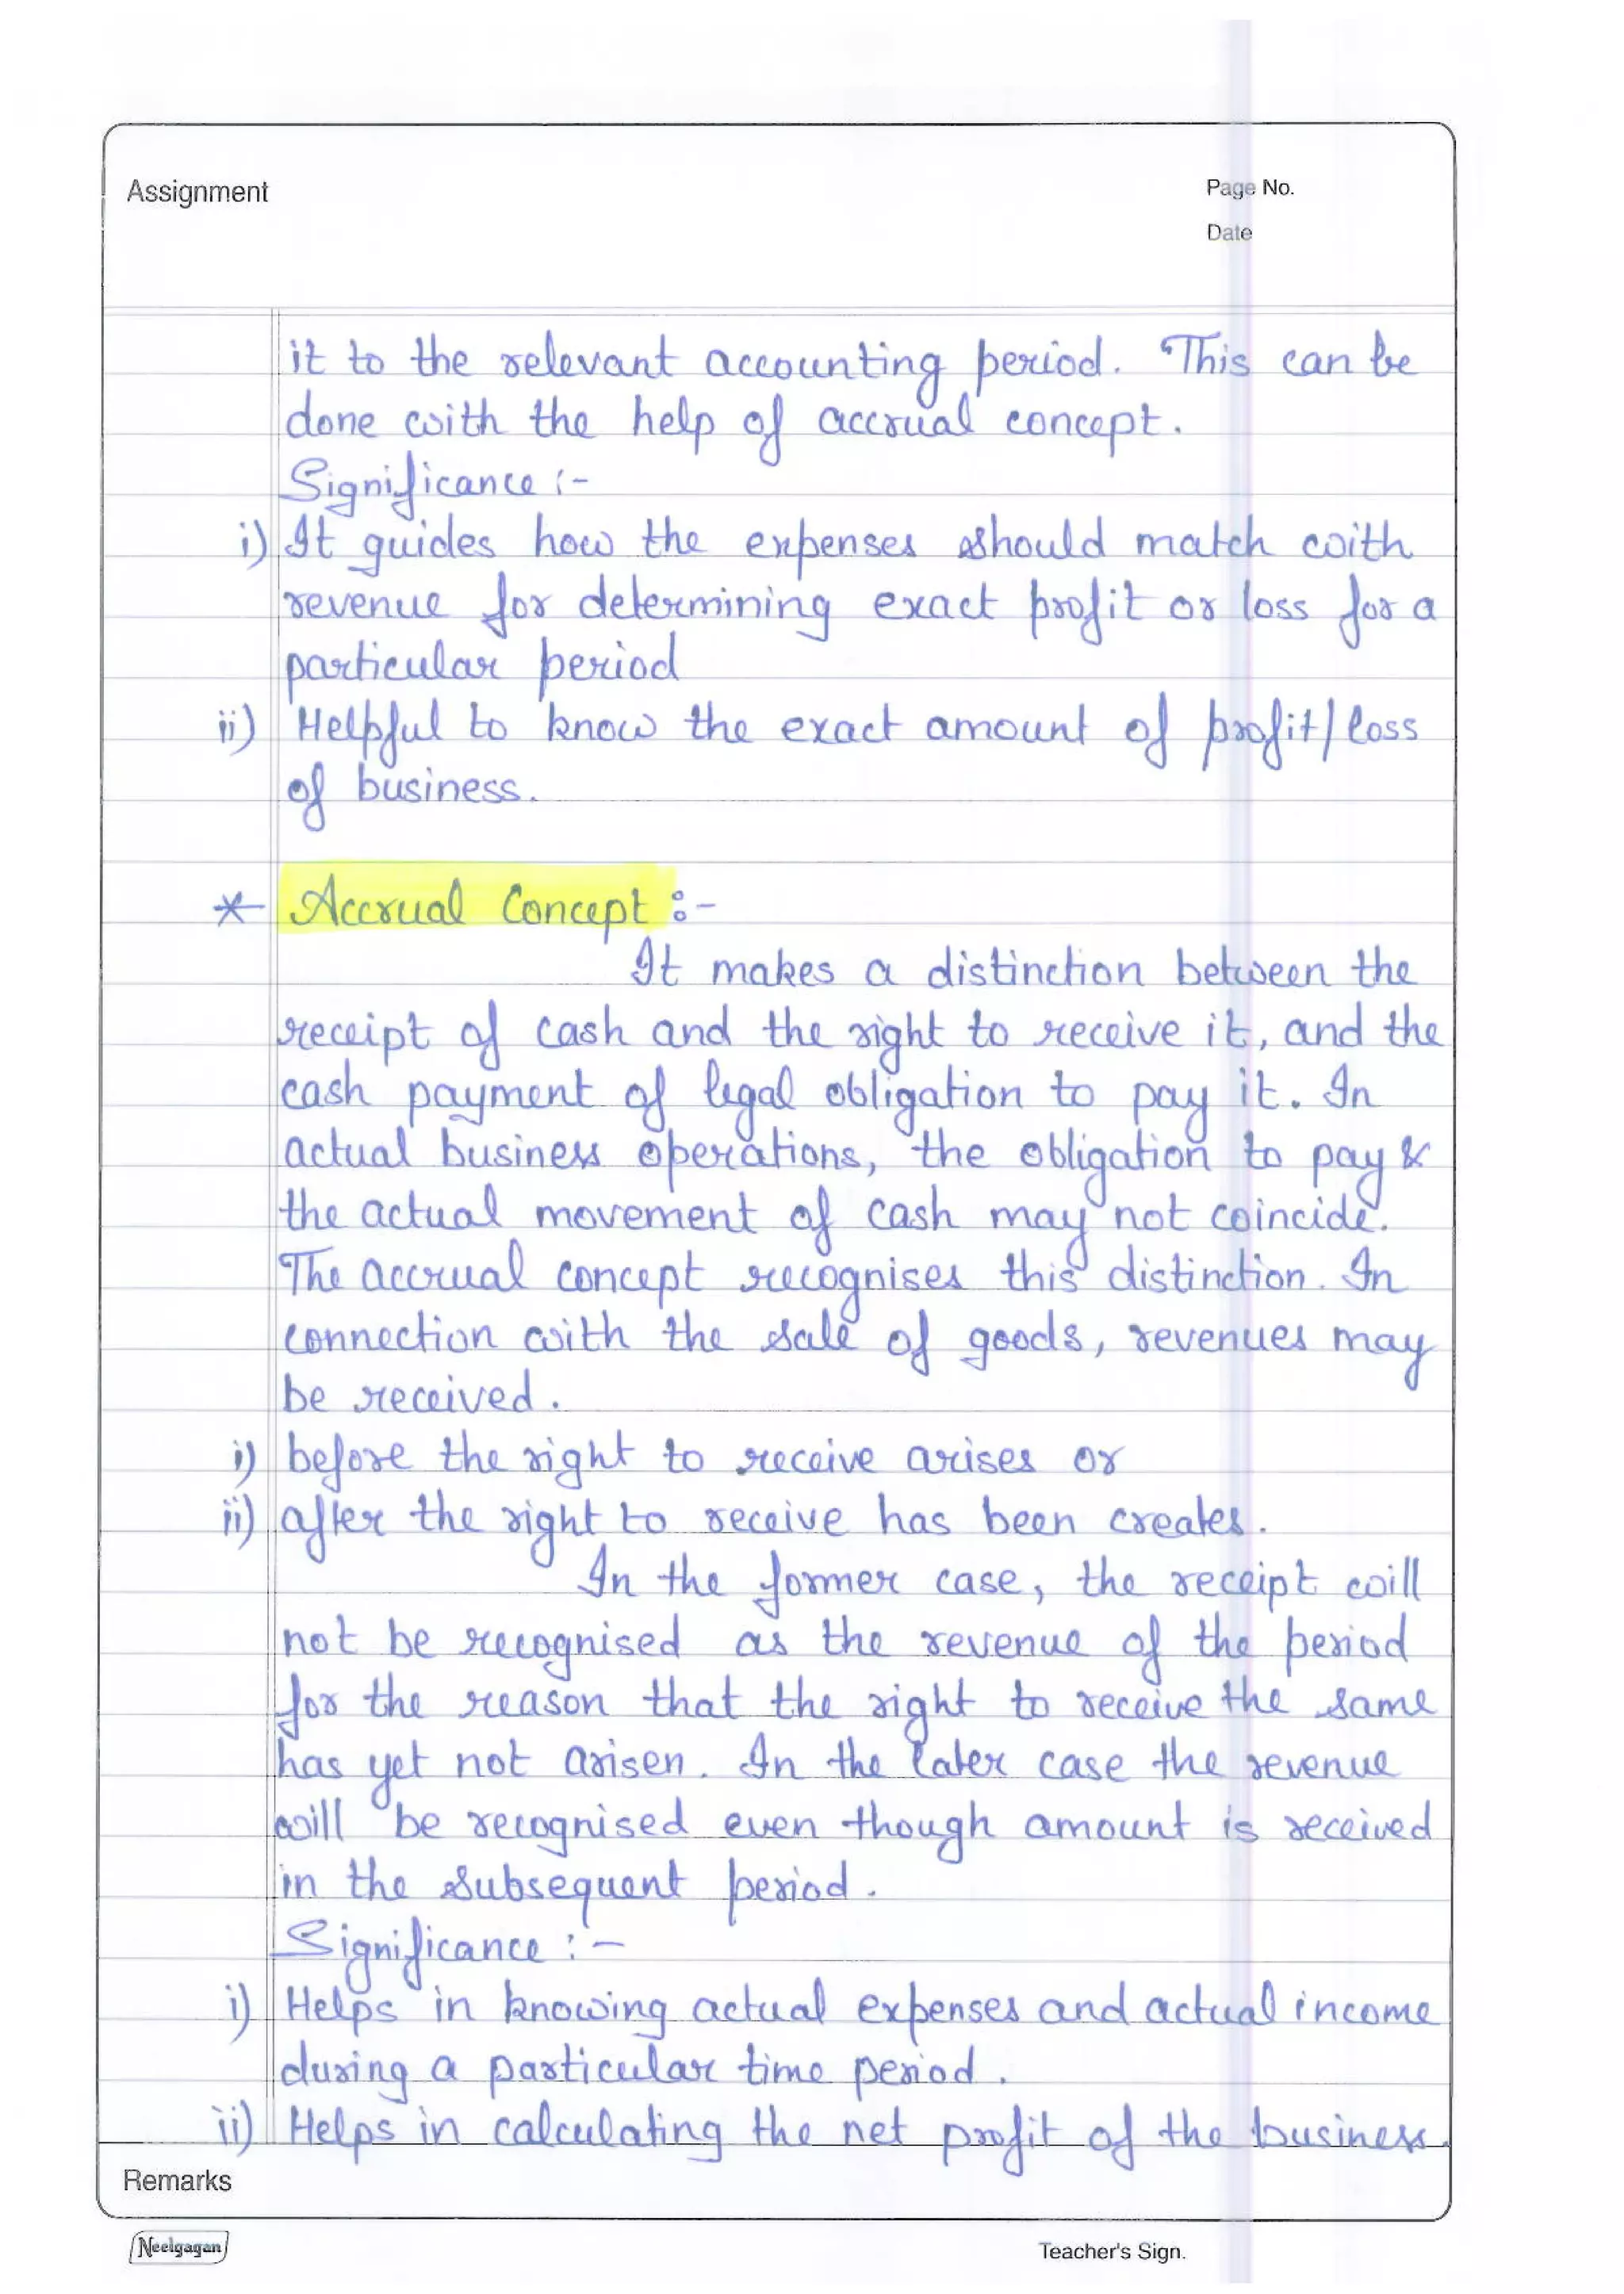 Assignment
Page No.
Date
it to the relevant accounting period. This can be
done with the help of accrual concept.
Significance :-
i) It guides how the expenses should match with
revenue for determining exact profit or loss for a
particular period
ii) Helpful to know the exact amount of profit/loss
of business.
* Accrual Concept :-
It makes a distinction between the
receipt of cash and the right to receive it, and the
cash payment of legal obligation to pay it. In
actual business operations, the obligation to pay &
the actual movement of cash may not coincide.
The accrual concept recognises this distinction. In
connection with the sale of goods, revenues may
be received.
i) before the right to receive arises or
ii) after the right to receive has been creates.
In the former case, the receipt will
not be recognised as the revenue of the period
for the reason that the right to receive the same
has yet not arisen. In the later case the revenue
will be recognised even though amount is received
in the subsequent period.
Significance :-
i) Helps in knowing actual expenses and actual income
during a particular time period.
ii) Helps in calculating the net profit of the business.
Remarks
Neelgagan
Teacher's Sign.